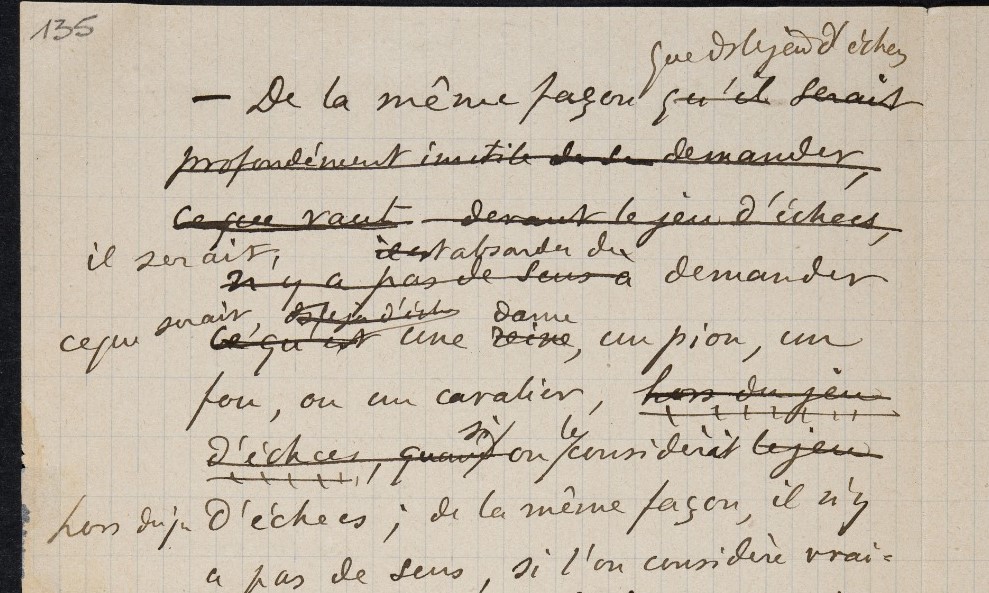 135
que ds le jeu d'échecs
— De la même façon qu'il serait
profondément inutile de se demander
ce que vaut devant le jeu d'échecs,
il serait, il est absurde de
n'y a pas de sens à demander
ce que serait ds le jeu d'échecs dame
Ce qu'est une reine, un pion, un
fou, ou un cavalier, hors du jeu
si le
d'échecs, quand on considérait le jeu
hors du jeu d'échecs ; de la même façon, il n'y
a pas de sens, si l'on considère vrai=